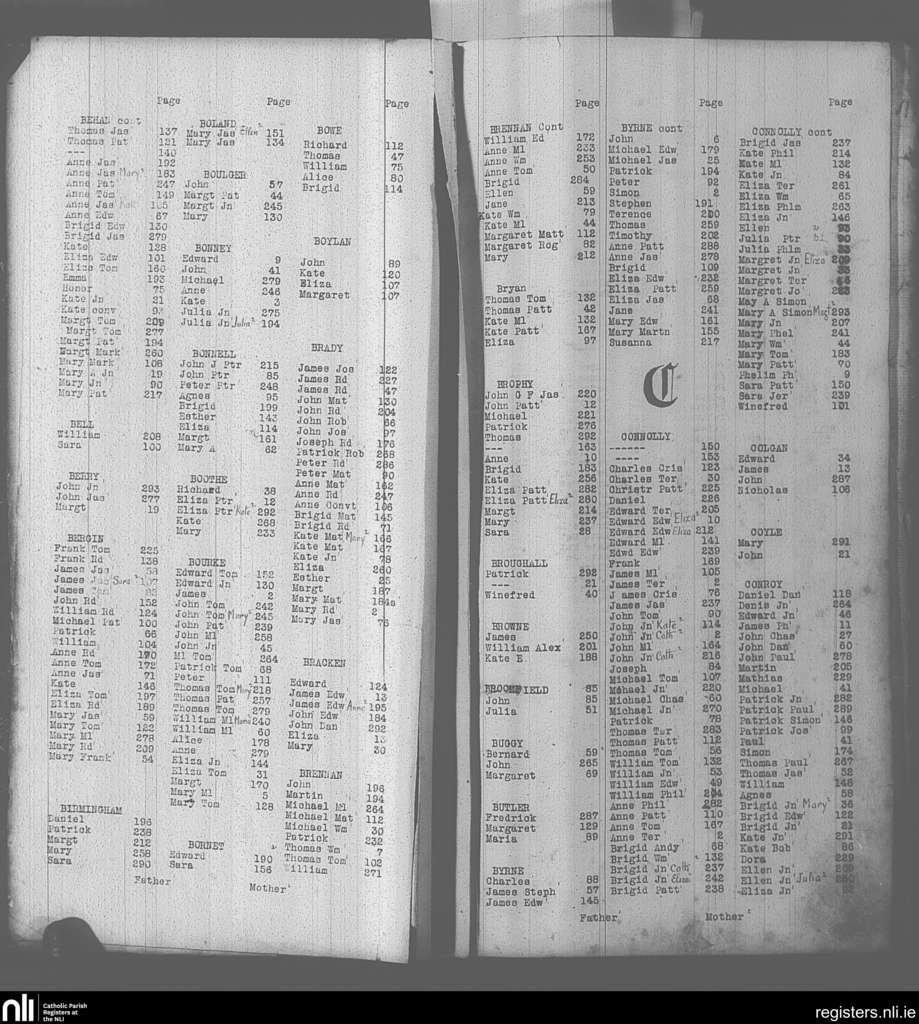 Page
BEHAN cont
Thomas Jas 137
Thomas Pat 121
--- 140
Anne Jas 192
Anne Jas Mary 183
Anne Pat 247
Anne Tom 149
Anne Jas
Anne Edw 67
Brigid Edw 130
Brigid Jas 279
Kate 128
Eliza Edw 101
Eliza Tom 160
Emma 193
Honor 75
Kate Jn 21
Kate conv
Margt Tom 209
Margt Tom 277
Margt Pat 194
Margt Mark 260
Mary Mark 108
Mary A Jn 19
Mary Jn 90
Mary Pat 217
BELL
William 208
Sara 100
BERRY
John Jn 293
John Jas 277
Margt 19
BERGIN
Frank Tom 225
Frank Rd 138
James Jas 58
James Jas Sara 107
James
John Rd 152
William Rd 124
Michael Pat 100
Patrick 66
William 104
Anne Rd 170
Anne Tom 172
Anne Jas 71
Kate 146
Eliza Tom 197
Eliza Rd 189
Mary Jas 59
Mary Tom 122
Mary Ml 278
Mary Rd 209
Mary Frank 54
BIRMINGHAM
Daniel 196
Patrick 238
Margt 212
Mary 258
Sara 290
Father
Page
BOLAND
Mary Jas Ellen 151
Mary Jas 134
BOULGER
John 57
Margt Pat 44
Margt Jn 245
Mary 130
BONNEY
Edward 9
John 41
Michael 279
Anne 246
Kate 3
Julia Jn 275
Julia Jn Julia 194
BONNELL
John J Ptr 215
John Ptr 85
Peter Ptr 248
Agnes 95
Brigid 199
Esther 143
Eliza 114
Margt 161
Mary A 62
BOOTHE
Richard 38
Eliza Ptr 12
Eliza Ptr Kate 292
Kate 268
Mary 233
BOURKE
Edward Tom 152
Edward Jn 130
James 2
John Tom 242
John Tom Mary 245
John Pat 239
John Ml 258
John Jn 45
Ml Tom 264
Patrick Tom 68
Peter 111
Thomas Tom Mary 218
Thomas Pat 257
Thomas Tom 279
William Ml Maria 240
William Ml 60
Alice 178
Anne 279
Eliza Jn 144
Eliza Tom 31
Margt 170
Mary Ml 5
Mary Tom 128
BURNET
Edward 190
Sara 156
Mother
Page
BOWE
Richard 112
Thomas 47
William 75
Alice 80
Brigid 114
BOYLAN
John 89
Kate 120
Eliza 107
Margaret 107
BRADY
James Jos 122
James Rd 227
James Rd 47
John Mat 130
John Rd 204
John Rob 66
John Jos 97
Joseph Rd 176
Patrick Rob 268
Peter Rd 286
Peter Mat 90
Anne Mat 162
Anne Rd 247
Anne Convt 106
Brigid Mat 145
Brigid Rd 71
Kate Mat Mary 166
Kate Mat 167
Kate Jn 78
Eliza 260
Esther 25
Margt 187
Mary Mat 184a
Mary Rd 2
Mary Jas 76
BRACKEN
Edward 124
James Edw 13
James Edw Anne 195
John Edw 184
John Dan 292
Eliza 13
Mary 30
BRENNAN
John 196
Martin 194
Michael Ml 264
Michael Mat 112
Michael Wm 30
Patrick 232
Thomas Wm 7
Thomas Tom 102
William 271
Page
BRENNAN Cont
William Ed 172
Anne Ml 233
Anne Wm 253
Anne Tom 50
Brigid 284
Ellen 59
Jane 213
Kate Wm 79
Kate Ml 44
Margaret Matt 112
Margaret Rog 82
Mary 212
Bryan
Thomas Tom 132
Thomas Patt 42
Kate Ml 132
Kate Patt 167
Eliza 97
BROPHY
John G F Jas 220
John Patt 12
Michael 221
Patrick 276
Thomas 292
--- 163
Anne 10
Brigid 183
Kate 256
Eliza Patt 282
Eliza Patt Eliza 280
Margt 214
Mary 237
Sara 28
BROUGHALL
Patrick 292
--- 21
Winefred 40
BROWNE
James 250
William Alex 201
Kate E 188
BROOMFIELD 85
John 85
Julia 51
BUGGY
Bernard 59
John 265
Margaret 69
BUTLER
Fredrick 287
Margaret 129
Maria 89
BYRNE
Charles 88
James Steph 57
James Edw 145
Father
Page
BYRNE cont
John 6
Michael Edw 179
Michael Jas 25
Patrick 194
Peter 92
Simon 2
Stephen 191
Terence 200
Thomas 259
Timothy 202
Anne Patt 288
Anne Jas 278
Brigid 109
Eliza Edw 232
Eliza Patt 259
Eliza Jas 68
Jane 241
Mary Edw 161
Mary Martn 155
Susanna 217
C
CONNOLLY
------ 150
---- 153
Charles Cris 123
Charles Ter 30
Christr Patt 225
Daniel 226
Edward Ter 205
Edward Edw Eliza 10
Edward Edw Eliza 212
Edward Ml 141
Edwd Edw 239
Frank 169
James Ml 105
James Ter 2
J ames Cris 76
James Jas 237
John Tom 90
John Jn Kate 114
John Jn Cath 2
John Ml 164
John Jn Cath 216
Joseph 84
Michael Tom 107
Michael Jn 220
Michael Chas 60
Michael Jn 270
Patrick 78
Thomas Ter 283
Thomas Patt 112
Thomas Tom 56
William Tom 132
William Jn 53
William Edw 49
William Phil 204
Anne Phil 282
Anne Patt 110
Anne Tom 167
Anne Ter 2
Brigid Andy 68
Brigid Wm 132
Brigid Jn Cath 237
Brigid Jn Eliza 242
Brigid Patt 238
Mother
Page
CONNOLLY cont
Brigid Jas 237
Kate Phil 214
Kate Ml 132
Kate Jn 84
Eliza Ter 261
Eliza Wm 65
Eliza Phlm 263
Eliza Jn 146
Ellen 93
Julia Ptr 90
Julia Phlm
Margret Jn Eliza 209
Margret Jn
Margret Ter
Margret Jo
May A Simon
Mary A Simon Margt 293
Mary Jn 207
Mary Phel 241
Mary Wm 44
Mary Tom 183
Mary Patt 70
Phelim Ph 9
Sara Patt 150
Sara Jer 239
Winefred 101
COLGAN
Edward 34
James 13
John 287
Nicholas 106
COYLE
Mary 291
John 21
CONROY
Daniel Dan 118
Denis Jn 264
Edward Jn 46
James Ph 11
John Chas 27
John Dan 60
John Paul 278
Martin 205
Mathias 229
Michael 41
Patrick Jn 282
Patrick Paul 289
Patrick Simon 146
Patrick Jos 99
Paul 41
Simon 174
Thomas Paul 267
Thomas Jas 52
William 146
Agnes 58
Brigid Jn Mary 36
Brigid Edw 122
Brigid Jn 21
Kate Jn 291
Kate Bob 86
Dora 229
Ellen Jn
Ellen Jn Julia
Eliza Jn
nli
Catholic Parish
Registers at
the NLI
registers.nli.ie